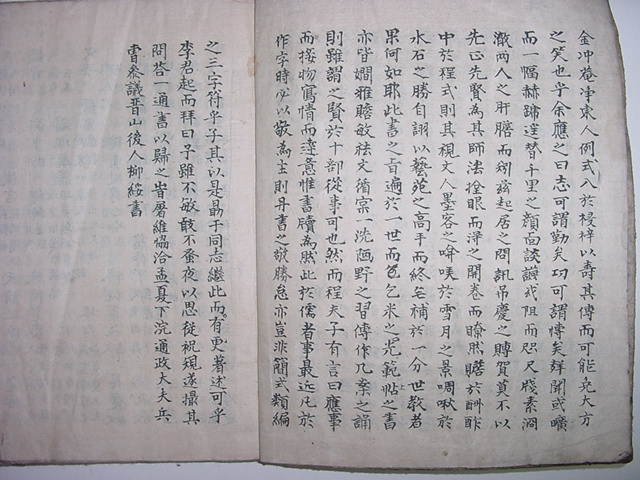 金冲菴凈東人例式入於棂梓以壽其傳而可能免大方
之笑也乎余應之曰志可謂勤矣功可謂博矣鲜聞或曠
而一幅赫蹄達替千里之顔面談讌或阻而咫尺牋素洞
澈兩人之肝膽而矧茲起居之問訊吊慶之賻賀莫不以
先正先賢為其師法拴眼而淨之開卷而瞭然贍於酬酢
中於程式則其視文人墨客之啽噗於雪月之景啁啾於
水石之勝自詡以藝苑之高平而終乞補於一分世教者
果何如耶此書之行遍於一世而乞米之光範帖之書
亦皆嫺雅贍敏祛文循宲一洗陋野之習傳作几案之誦
則雖謂之賢於十部從事可也然而程夫子有言曰應事
而接物寫情而達意惟書牘為然此於儒者事最近凡於
作字時必以敬為主則丹書之敬勝怠亦豈非簡式類編
之三字符乎子其以是勗于同志繼此而有更著述可乎
李君起而拜曰子雖不敏敢不蚤夜以思從祝規遂撮其
問荅一通書以歸之旹屠維協洽孟夏下浣通政大夫兵
曹叅議晋山後人柳綏書